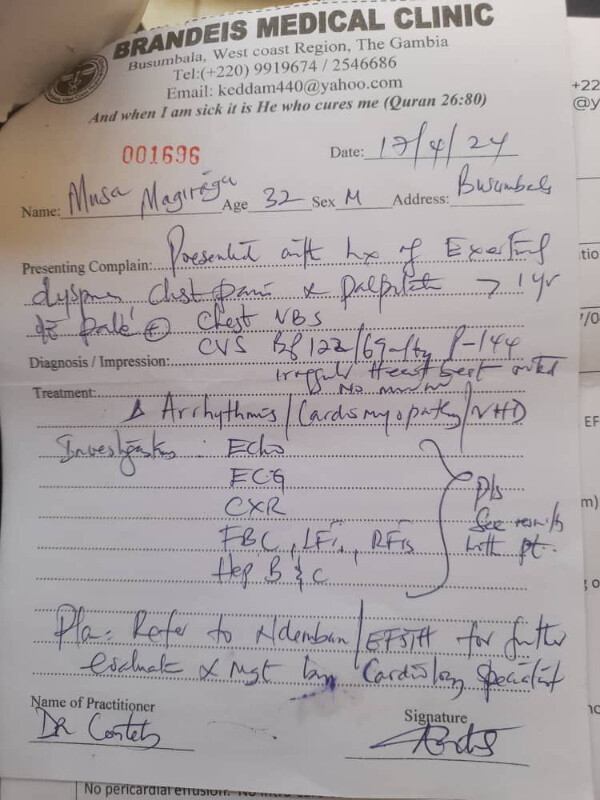 BRANDEIS MEDICAL CLINIC
Busumbala, West coast Region, The Gambia
Tel:(+220) 9919674 / 2546686
Email: keddam440@yahoo.com
And when I am sick it is He who cures me (Quran 26:80)
001696
Date: 17/4/24
Name: Musa Magirega Age 32 Sex M Address: Busumbala
Presenting Complain: Presented with hx of Exertional
dyspnea chest pain & palpitate > 1 yr
pale Chest NBS
CVS BP 122/69 mmHg P-144
Diagnosis / Impression: Irregular Heart beat noted
Treatment: No murmur
Δ Arrhythmia / Cardiomyopathy / VHD
Investigation: Echo
ECG
CXR
FBC, LFTs, RFTs
Hep B & C
Pls
See results
with pt.
Plan: Refer to Ndemban / EFSTH for further
evaluate & mgt by Cardiology specialist
Name of Practitioner
Signature
DR
No pericardial effusion.
+22
@y
EF